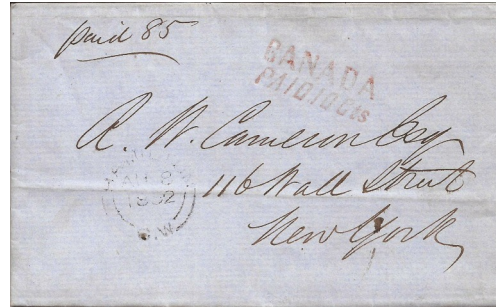 paid 85
CANADA
PAID 10 Cts
R. W. Cameron Esq
116 Wall Street
New York
1852
C.W.